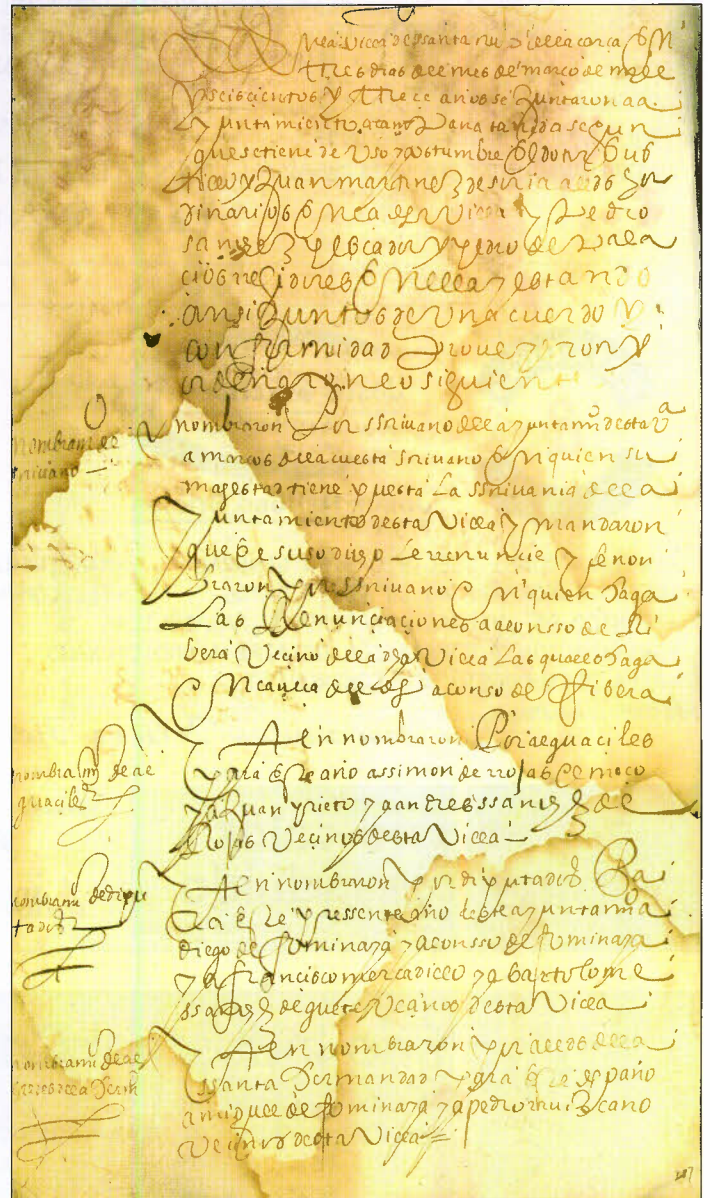 En la Villa de santa mª de la carça En
tres dias del mes de março de mill
y seiscientos y trece años se Juntaron a a
yuntamiento a canpana tañida segun
que se tiene de uso y costumbre El dotor bus
y Juan martinez de soria alcdes hor
dinarios En la dha Villa y Pedro
sanchez pescador y pedro de Pala
cios regidores En ella y estando
ansi Juntos de Un acuerdo y
conformidad Proveyeron y
ordenaron lo siguiente
nombramº de
scrivano
nombraron Por sscrivano del ayuntamº desta Vª
a marcos de la cuesta scrivano En quien su
magestad tiene puesta La sscrivania del a
yuntamiento desta Villa y mandaron
que El suso dicho Le rrenuncie y se non
braron por sscrivano En quien haga
Las Renunciaciones a alonsso de Ri
bera Vecino de la dha Villa Las quales haga
En cavça del dho alonso de Ribera
nombramº de al
guaciles
Yten nombraron Por alguaciles
para Este año a ssimon de rrojas El moço
y a Juan prieto y a andres ssanchez de
Rojas Vecinos desta Villa
nombramº de dipu
tados
Yten nombraron por diputados Pa
ra Este pressente año deste ayuntamº a
diego de fominaya y a alonsso de fominaya
y a francisco mercadillo y a bartolome
ssanchez de guete Vecinos desta Villa
nombramº de al
caldes de la herm
Yten nombraron por alcdes de la
ssanta hermandad para Este dho año
a miguel de fominaya y a pedro muiz cano
Vecinos desta Villa